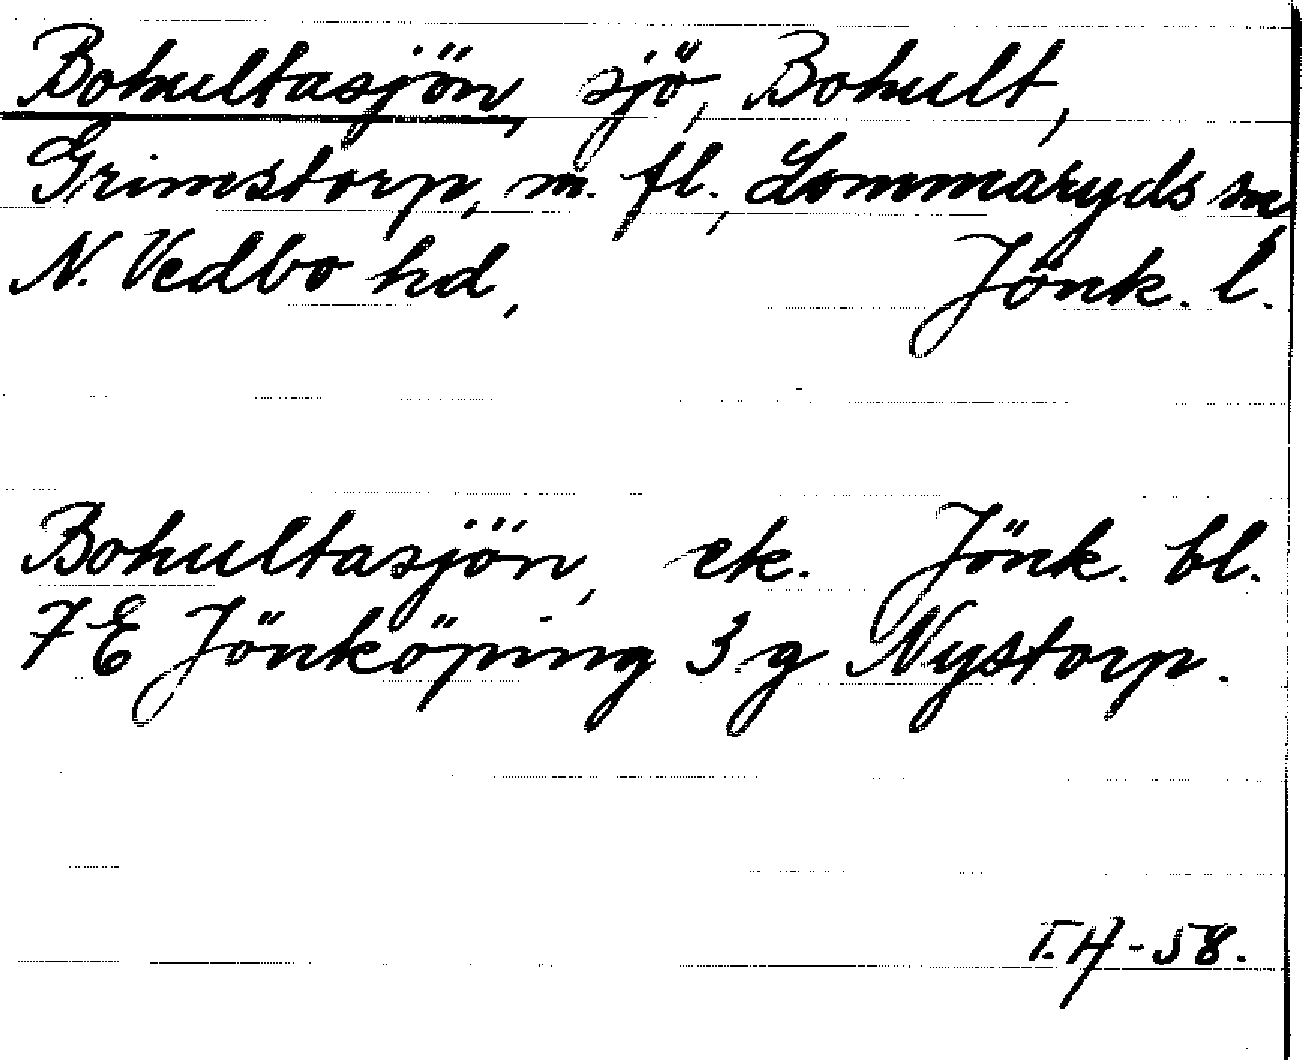 Bohultasjön, sjö, Bohult,
Grimstorp, m. fl., Lommaryds sn
N. Vedbo hd, Jönk. l.
Bohultasjön, ek. Jönk. bl.
7E Jönköping 3 g Nystorp.
T.H-58.